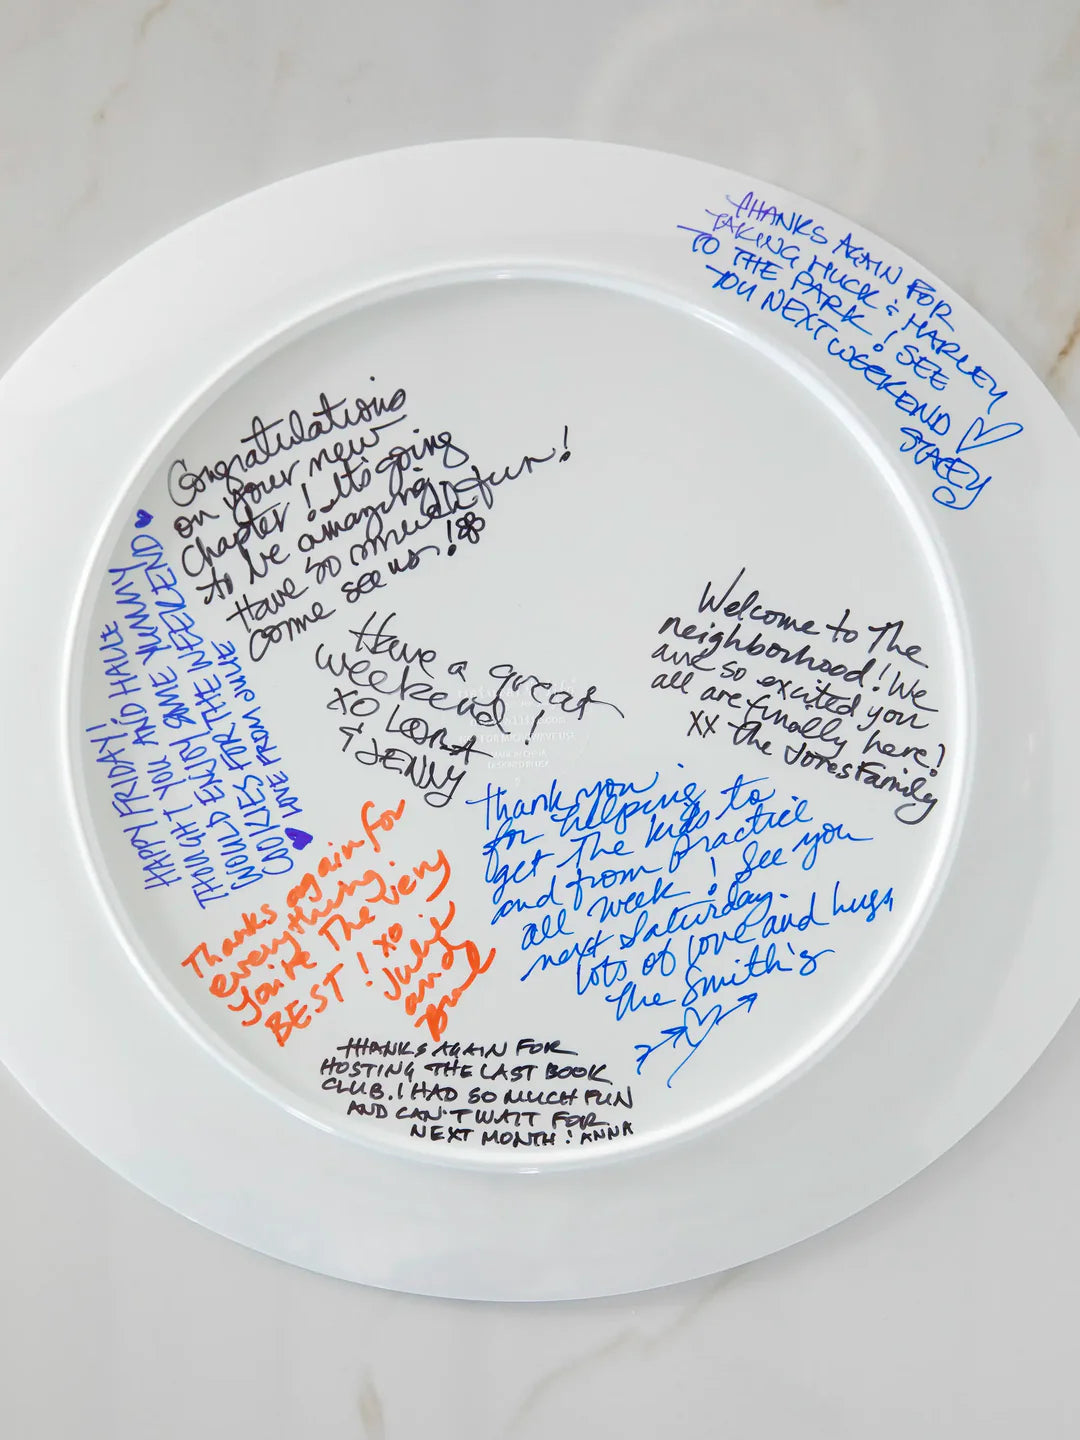 THANKS AGAIN FOR
TAKING HUCK & HARLEY
TO THE PARK! SEE
YOU NEXT WEEKEND
STACEY
Congratulations
on your new
chapter! It's going
to be amazing
Have so much fun!
come see us!
HAPPY FRIDAY!
THOUGHT YOU AND HALLIE
WOULD ENJOY SOME YUMMY
COOKIES FOR THE WEEKEND
LOVE FROM JULIE
Have a great
weekend!
XO LORA
& JENNY
Welcome to The
neighborhood! We
are so excited you
all are finally here!
XX The Jones Family
Thank you
for helping
get The kids to
and from practice
all week! See you
next Saturday.
lots of love and hugs,
The Smith's
Thanks again for
everything
You're The very
BEST! XO
Julie
and
THANKS AGAIN FOR
HOSTING THE LAST BOOK
CLUB. I HAD SO MUCH FUN
AND CAN'T WAIT FOR
NEXT MONTH! ANNA
MADE IN CHINA
DESIGNED IN USA